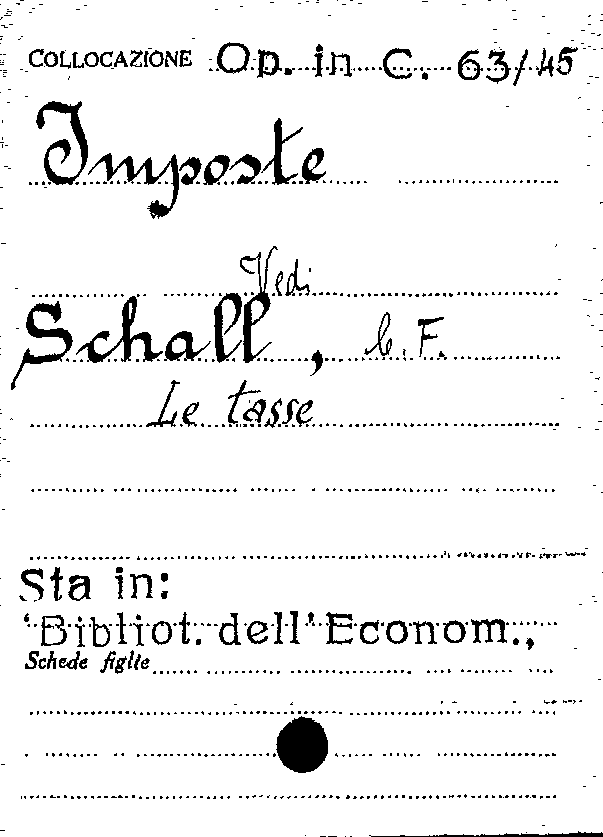 COLLOCAZIONE Op. in C. 63/45
Imposte
Vedi
Schall, C. F.
Le tasse
Sta in:
"Bibliot. dell'Econom.,
Schede figlie